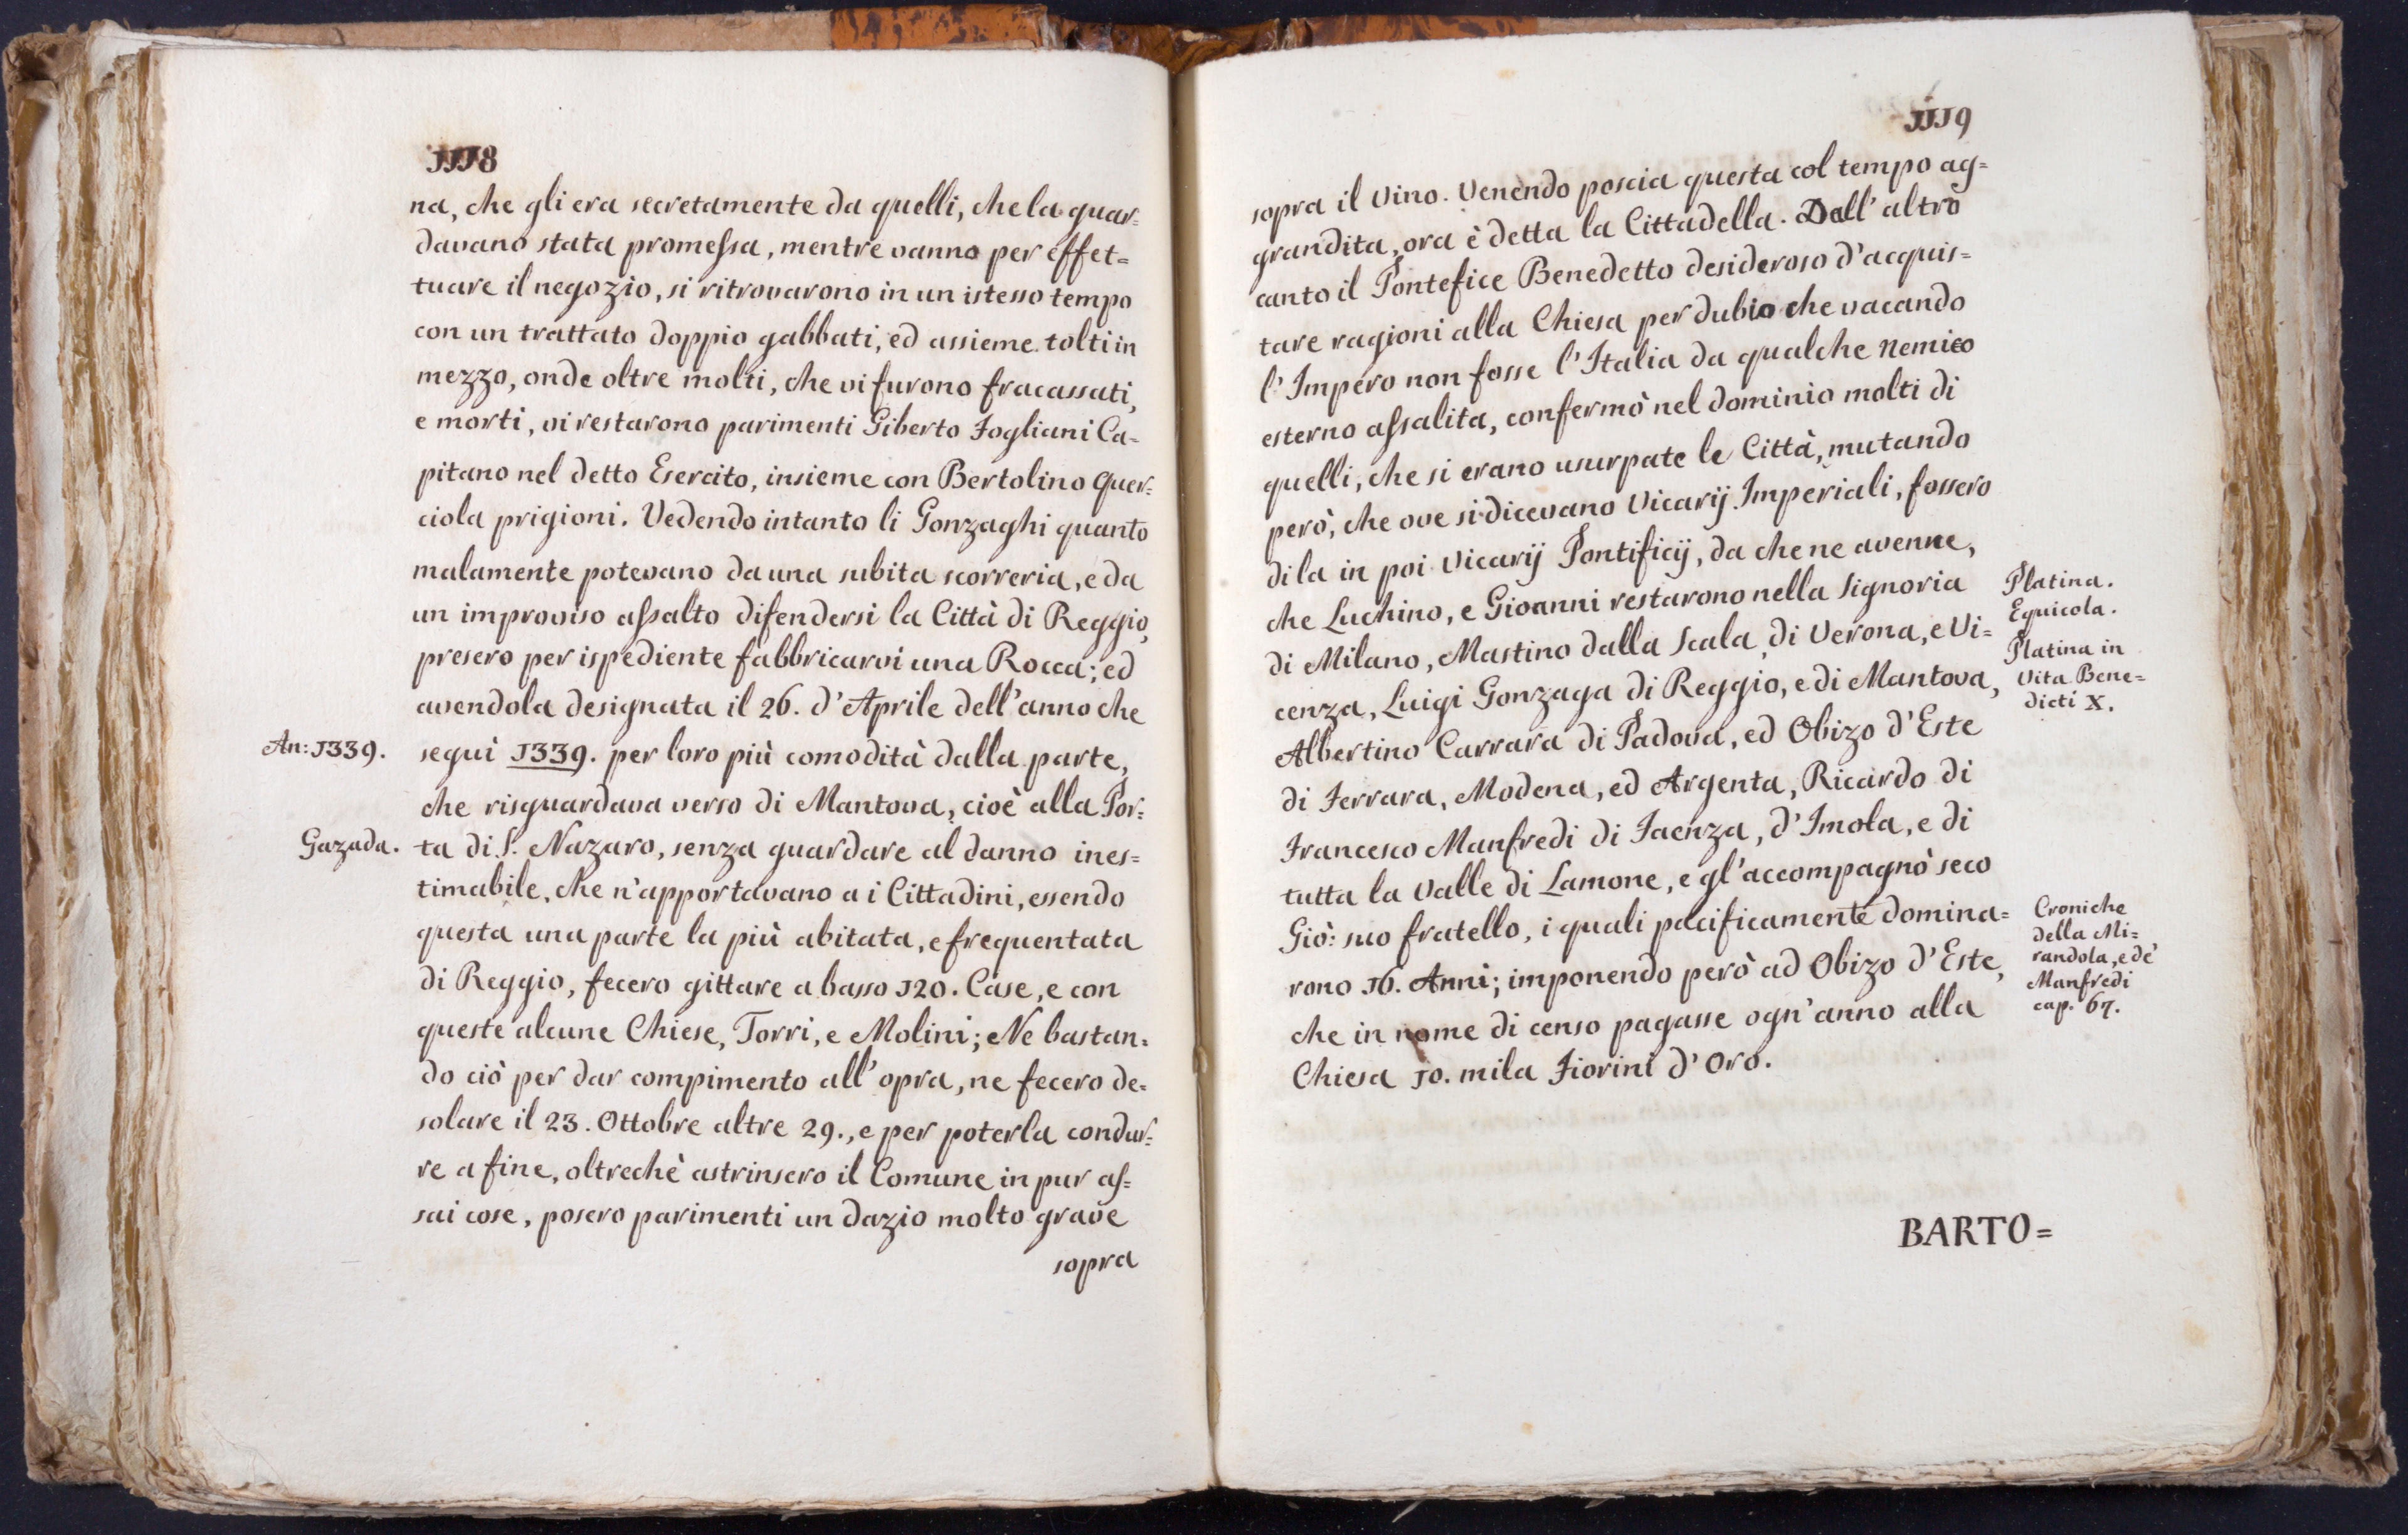 1118
na, che gli era secretamente da quelli, che la guar=
davano stata promessa, mentre vanno per effet=
tuare il negozio, si ritrovarono in un istesso tempo
con un trattato doppio gabbati, ed assieme tolti in
mezzo, onde oltre molti, che vi furono fracassati,
e morti, vi restarono parimenti Giberto Fogliani Ca=
pitano nel detto Esercito, insieme con Bertolino Quer=
ciola prigioni. Vedendo intanto li Gonzaghi quanto
malamente potevano da una subita scorreria, e da
un improviso assalto difendersi la Città di Reggio,
presero per ispediente fabbricarvi una Rocca; ed
avendola designata il 26. d'Aprile dell'anno che
An: 1339. seguì 1339. per loro più comodità dalla parte,
che risguardava verso di Mantova, cioè alla Por=
Gazada. ta di S. Nazaro, senza guardare al danno ines=
timabile, che n'apportavano a i Cittadini, essendo
questa una parte la più abitata, e frequentata
di Reggio, fecero gittare a basso 120. Case, e con
queste alcune Chiese, Torri, e Molini; Ne bastan=
do ciò per dar compimento all'opra, ne fecero de=
solare il 23. Ottobre altre 29., e per poterla condur=
re a fine, oltrechè astrinsero il Comune in pur as=
sai cose, posero parimenti un dazio molto grave
sopra
1119
sopra il vino. Venendo poscia questa col tempo ag=
grandita, ora è detta la Cittadella. Dall'altro
canto il Pontefice Benedetto desideroso d'acquis=
tare ragioni alla Chiesa per dubio che vacando
l'Impero non fosse l'Italia da qualche nemico
esterno assalita, confermò nel dominio molti di
quelli, che si erano usurpate le Città, mutando
però, che ove si dicevano Vicarij Imperiali, fossero
di la in poi Vicarij Pontificij, da che ne avenne,
che Luchino, e Giovanni restarono nella Signoria
di Milano, Mastino dalla Scala di Verona, e Vi=
cenza, Luigi Gonzaga di Reggio, e di Mantova,
Albertino Carrara di Padova, ed Obizo d'Este
di Ferrara, Modena, ed Argenta, Ricardo di
Francesco Manfredi di Faenza, d'Imola, e di
tutta la Valle di Lamone, e gl'accompagnò seco
Giò: suo fratello, i quali pacificamente domina=
rono 16. Anni; imponendo però ad Obizo d'Este,
che in nome di censo pagasse ogn'anno alla
Chiesa 10. mila Fiorini d'Oro.
Platina.
Equicola.
Platina in
Vita Bene=
dicti X.
Croniche
della Mi=
randola, e de'
Manfredi
cap. 67.
BARTO=